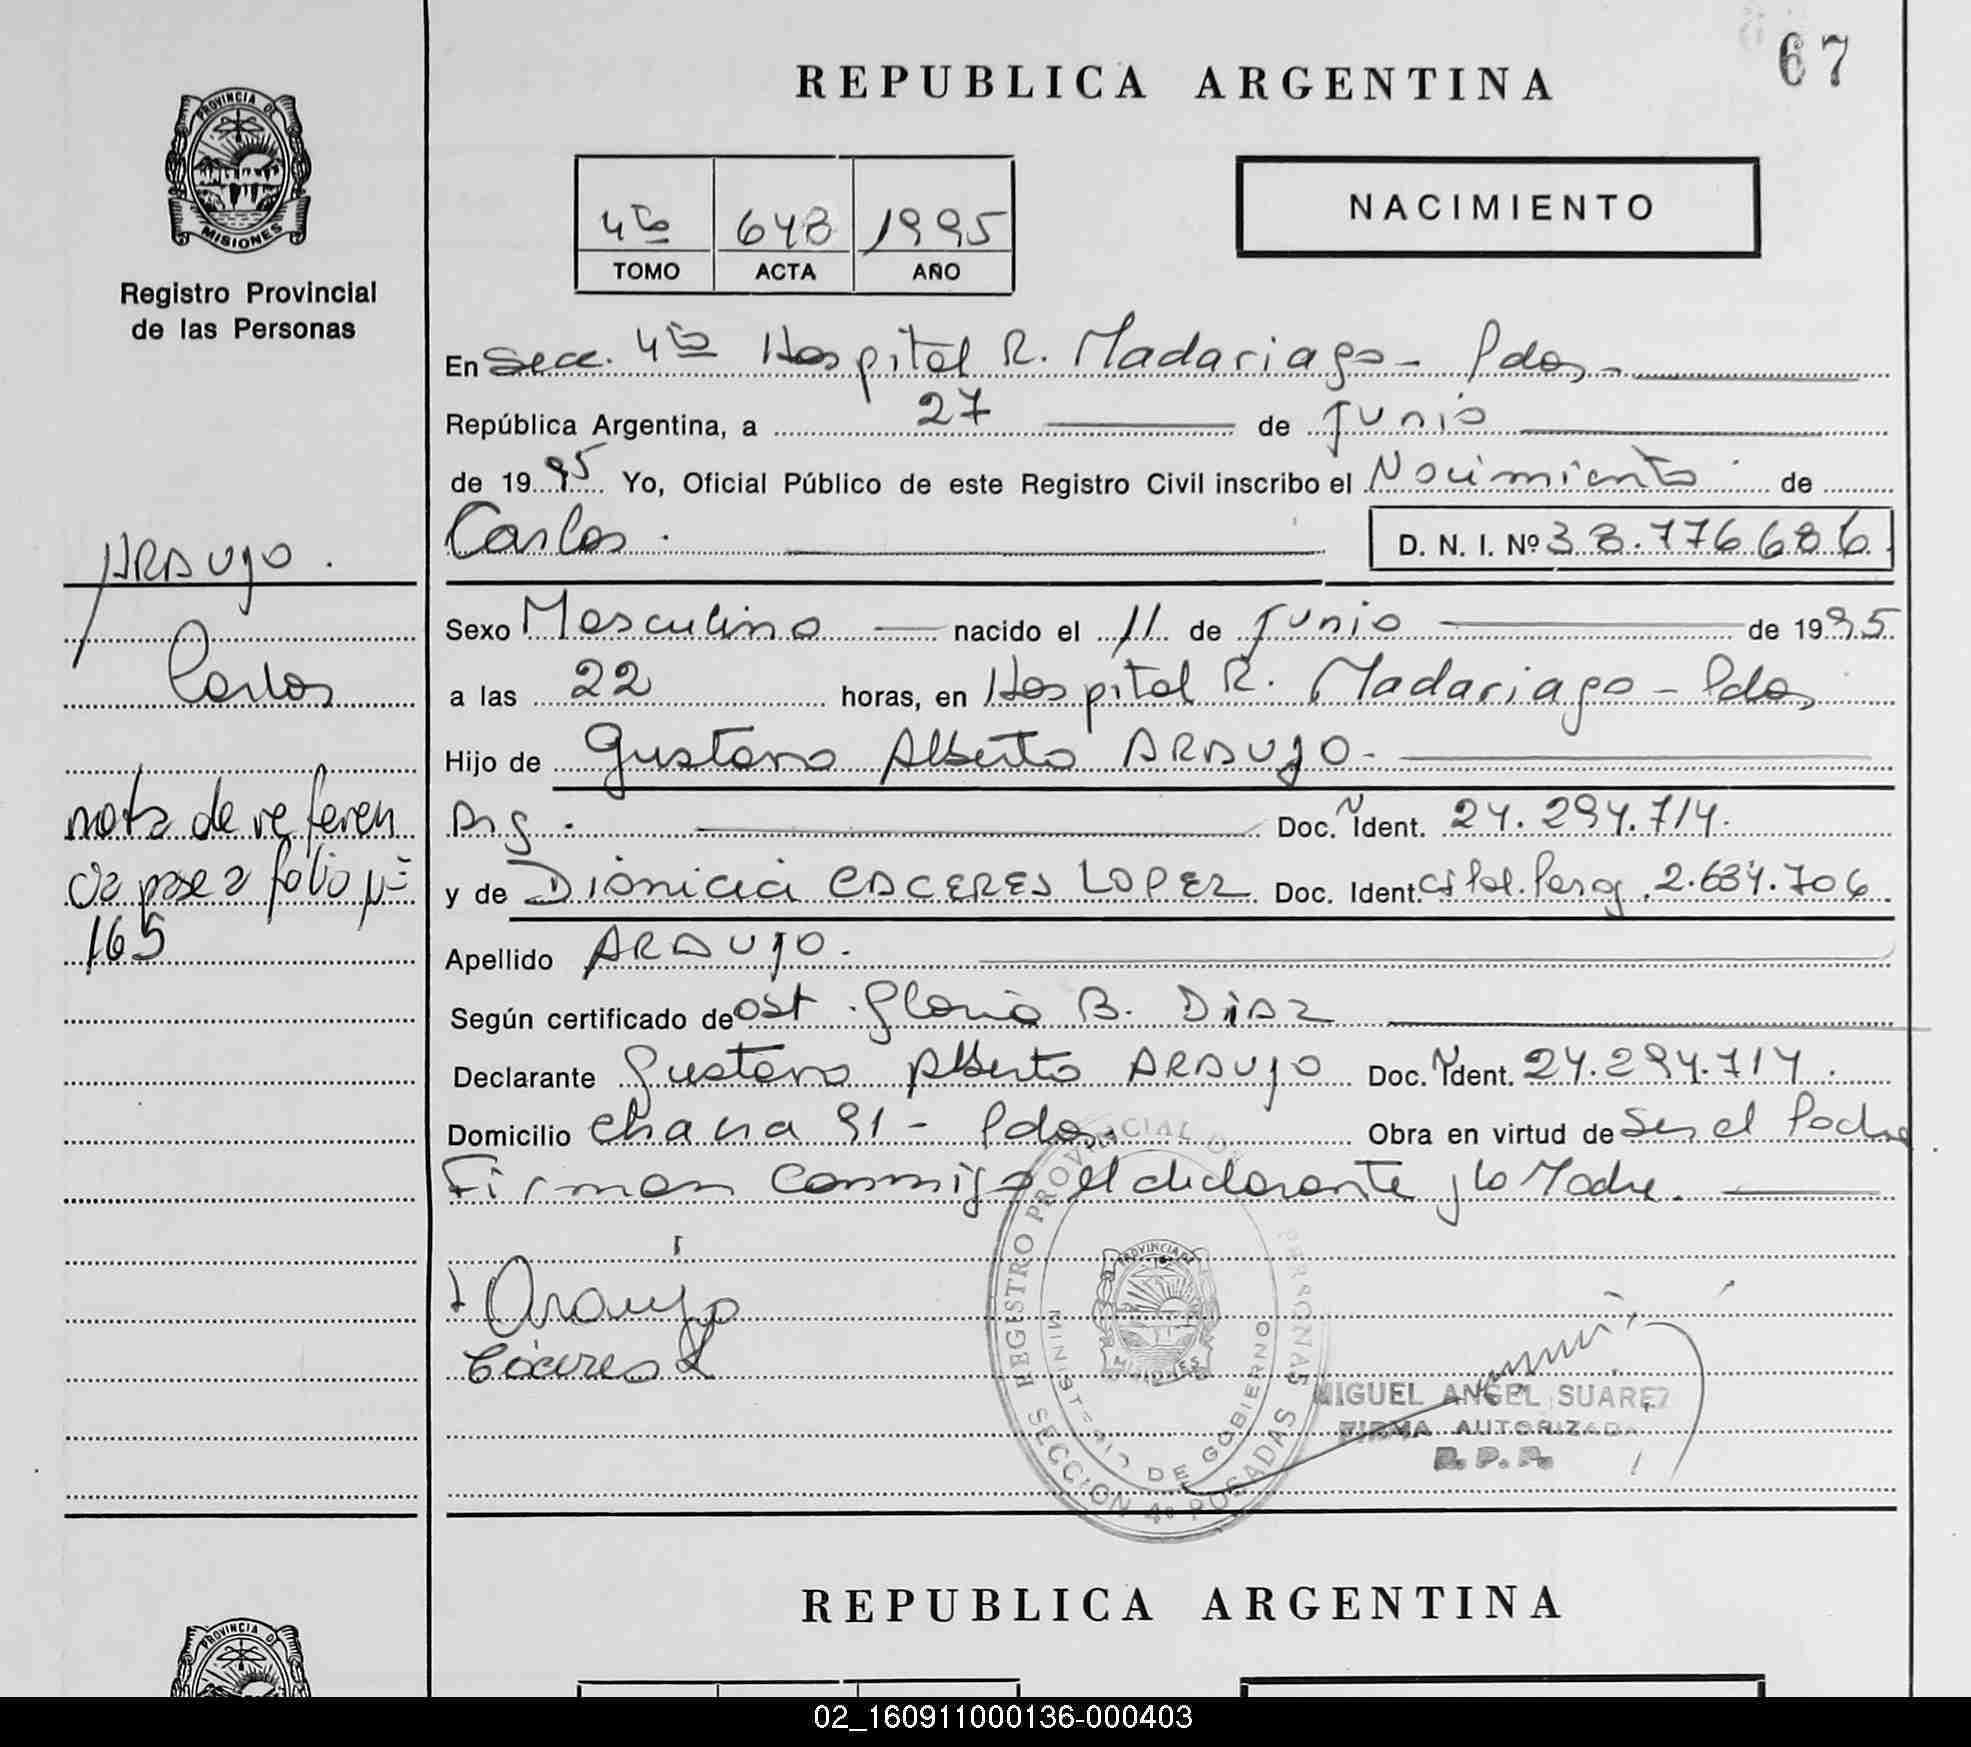 67
REPUBLICA ARGENTINA
PROVINCIA DE
MISIONES
Registro Provincial
de las Personas
NACIMIENTO
4ta 648 1995
TOMO ACTA AÑO
En Secc. 4ta Hospital R. Madariaga - Pdas -
República Argentina, a 27 de Junio
de 1995 Yo, Oficial Público de este Registro Civil inscribo el Nacimiento de
Carlos. D. N. I. Nº 38.776.686
ARAUJO.
Carlos
nota de referen
cia pase a folio nº
165
Sexo Masculino nacido el 11 de Junio de 1995
a las 22 horas, en Hospital R. Madariaga - Pdas
Hijo de Gustavo Alberto ARAUJO -
Arg. Doc. N Ident. 24.294.714.
y de Dionicia CACERES LOPEZ Doc. Ident. Pol. Parag. 2.634.706
Apellido ARAUJO.
Según certificado de Obst. Gloria B. DIAZ
Declarante Gustavo Alberto ARAUJO Doc. N Ident. 24.294.714.
Domicilio Chacra 91 - Pdas. Obra en virtud de Ser el Padre
Firman conmigo el declarante y la Madre.
Araujo
Cáceres L
REGISTRO PROVINCIAL DE PERSONAS
MINISTERIO DE GOBIERNO
SECCION 4ª POSADAS
PROVINCIA DE
MISIONES
MIGUEL ANGEL SUAREZ
FIRMA AUTORIZADA
R. P. P.
REPUBLICA ARGENTINA
PROVINCIA DE
02_160911000136-000403